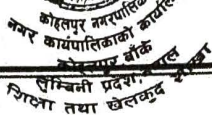 कोहलपुर नगरपालिका
नगर कार्यपालिकाको कार्यालय
कोहलपुर बाँके
लुम्बिनी प्रदेश, नेपाल
शिक्षा तथा खेलकुद शाखा